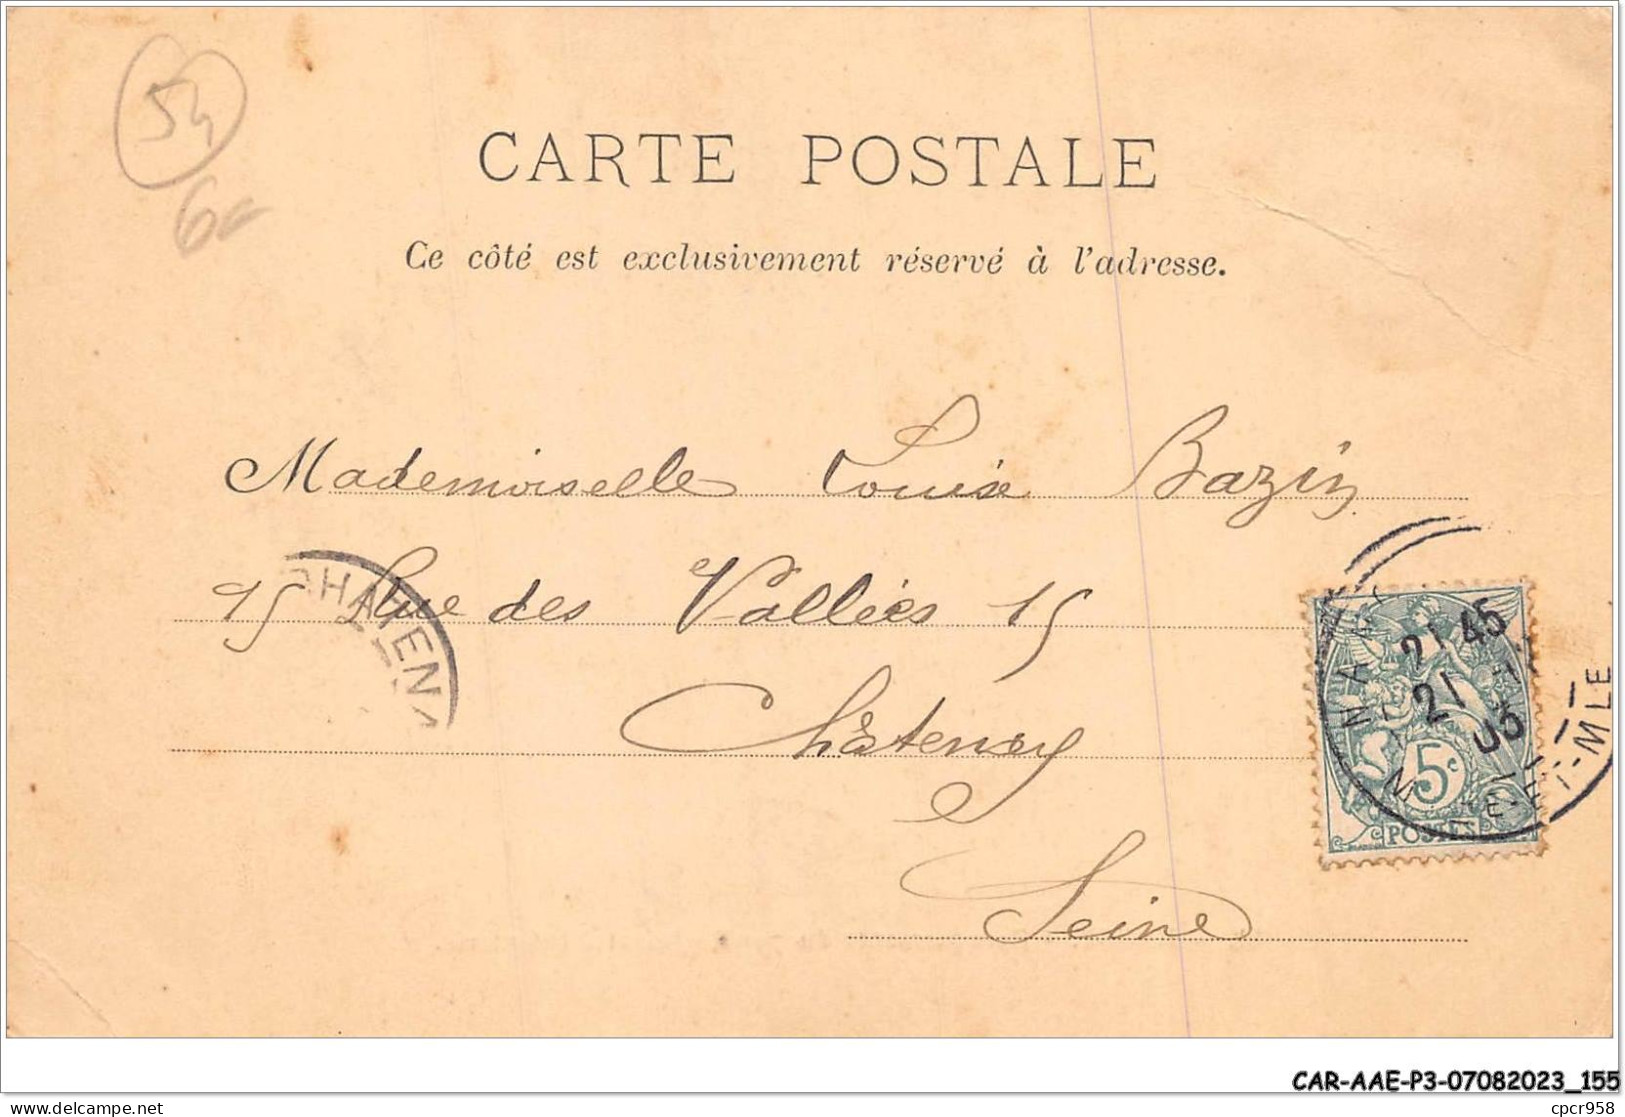 54
6e
CARTE POSTALE
Ce côté est exclusivement réservé à l'adresse.
Mademoiselle Louise Bazin
15 Rue des Vallées 15
Châtenay
Seine
CHATENA
NAN
21 45
21
03
M LE-ET-MLE
5c
POSTES
CAR-AAE-P3-07082023_155
delcampe.net
cpcr958